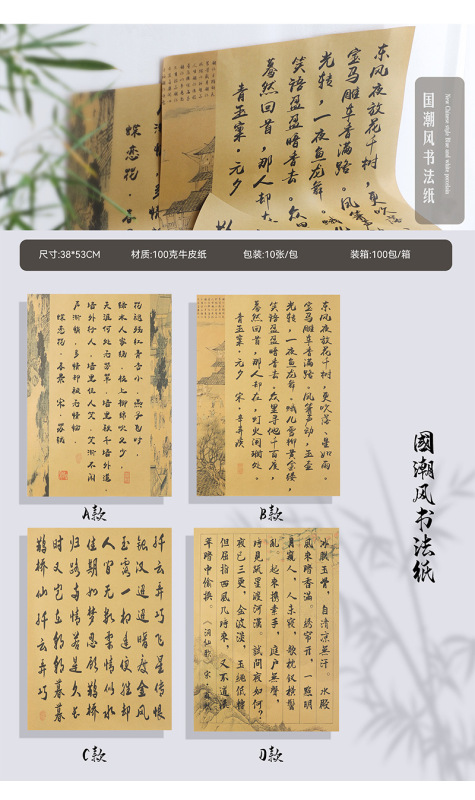 东风夜放花千树，更吹落
宝马雕车香满路。凤
光转，一夜鱼龙舞。
笑语盈盈暗香去。众
蓦然回首，那人却
青玉案·元夕
蝶恋花·春
国潮风书法纸
尺寸:38*53CM
材质:100克牛皮纸
包装:10张/包
装箱:100包/箱
花褪残红青杏小，燕子飞时，
绿水人家绕。枝上柳绵吹又少，
天涯何处无芳草。墙里秋千墙外道。
墙外行人，墙里佳人笑。笑渐不闻
声渐悄，多情却被无情恼。
蝶恋花·春景 宋·苏轼
A款
东风夜放花千树，更吹落，星如雨。
宝马雕车香满路。凤箫声动，玉壶
光转，一夜鱼龙舞。蛾儿雪柳黄金缕，
笑语盈盈暗香去。众里寻他千百度，
蓦然回首，那人却在，灯火阑珊处。
青玉案·元夕 宋·辛弃疾
B款
國潮风书法纸
纤云弄巧飞星传恨
银汉迢迢暗度金风
玉露一相逢便胜却
人间无数柔情似水
佳期如梦忍顾鹊桥
归路两情若是久长
时又岂在朝朝暮暮
鹊桥仙纤云弄巧
C款
冰肌玉骨，自清凉无汗。水殿
风来暗香满。绣帘开，一点明
月窥人，人未寝，欹枕钗横鬓
乱。起来携素手，庭户无声，
时见疏星渡河汉。试问夜如何？
夜已三更，金波淡，玉绳低转
但屈指西风几时来，又不道流
年暗中偷换。（洞仙歌 宋·苏轼）
D款